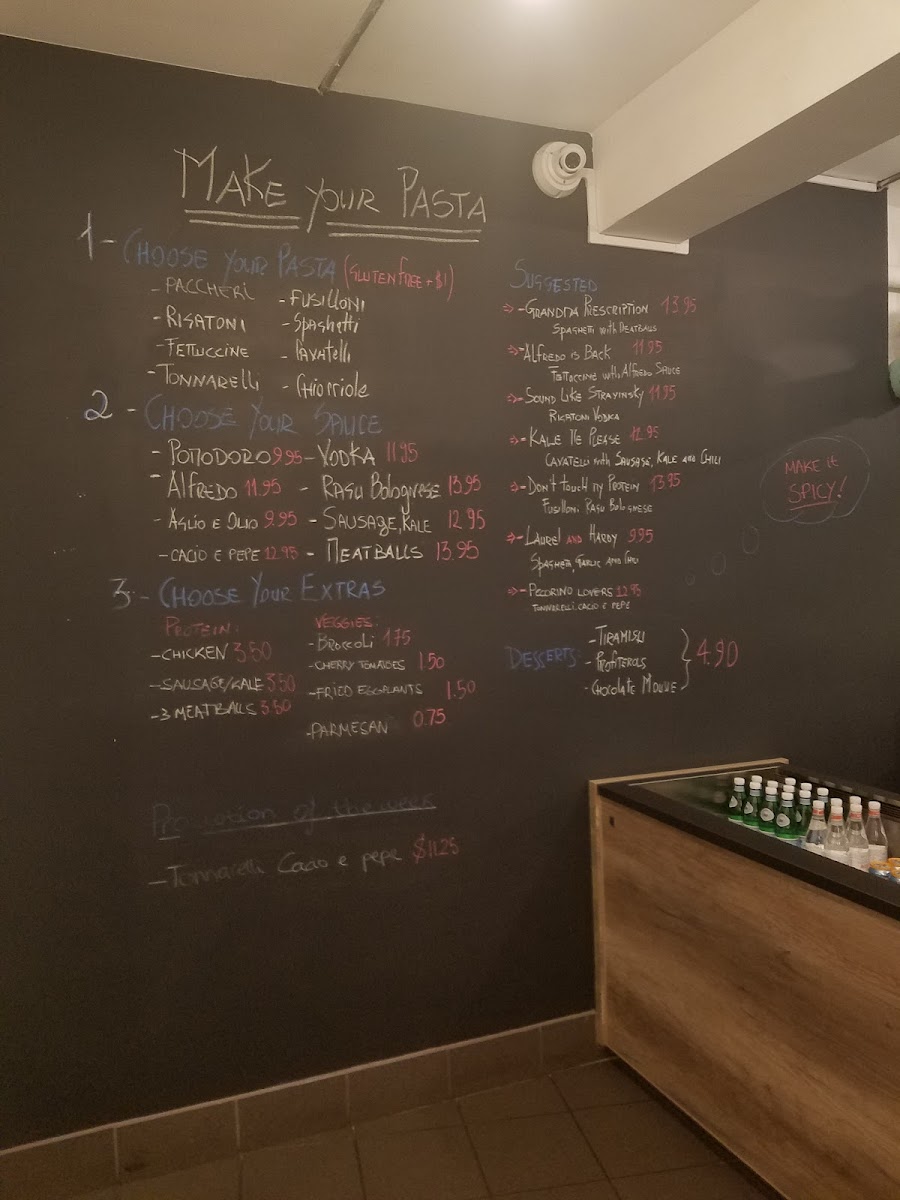 MAKE YOUR PASTA
1 - CHOOSE YOUR PASTA (GLUTEN FREE + $1)
- PACCHERI - FUSILLONI
- RIGATONI - Spaghetti
- FETTUCCINE - CAVATELLI
- TONNARELLI - Chiocciole
2 - CHOOSE YOUR SAUCE
- POMODORO 9.95 - VODKA 11.95
- ALFREDO 11.95 - RAGU BOLOGNESE 13.95
- AGLIO E OLIO 9.95 - SAUSAGE, KALE 12.95
- CACIO E PEPE 12.95 - MEATBALLS 13.95
3 - CHOOSE YOUR EXTRAS
PROTEIN: VEGGIES:
- CHICKEN 3.50 - BROCCOLI 1.75
- SAUSAGE/KALE 3.50 - CHERRY TOMATOES 1.50
- 3 MEATBALLS 3.50 - FRIED EGGPLANTS 1.50
- PARMESAN 0.75
Promotion of the week
- Tonnarelli Cacio e pepe $11.25
SUGGESTED
- GRANDMA PRESCRIPTION 13.95
SPAGHETTI with MEATBALLS
- ALFREDO IS BACK 11.95
FETTUCCINE with ALFREDO SAUCE
- SOUND LIKE STRAVINSKY 11.95
RIGATONI VODKA
- KALE ME PLEASE 12.95
CAVATELLI with SAUSAGE, KALE AND CHILI
- DON'T TOUCH MY PROTEIN 13.95
FUSILLONI RAGU BOLOGNESE
- LAUREL AND HARDY 9.95
SPAGHETTI, GARLIC AND CHILI
- PECORINO LOVERS 12.95
TONNARELLI, CACIO E PEPE
DESSERTS: - TIRAMISU
- PROFITEROLS 4.90
- CHOCOLATE MOUSSE
MAKE IT
SPICY!